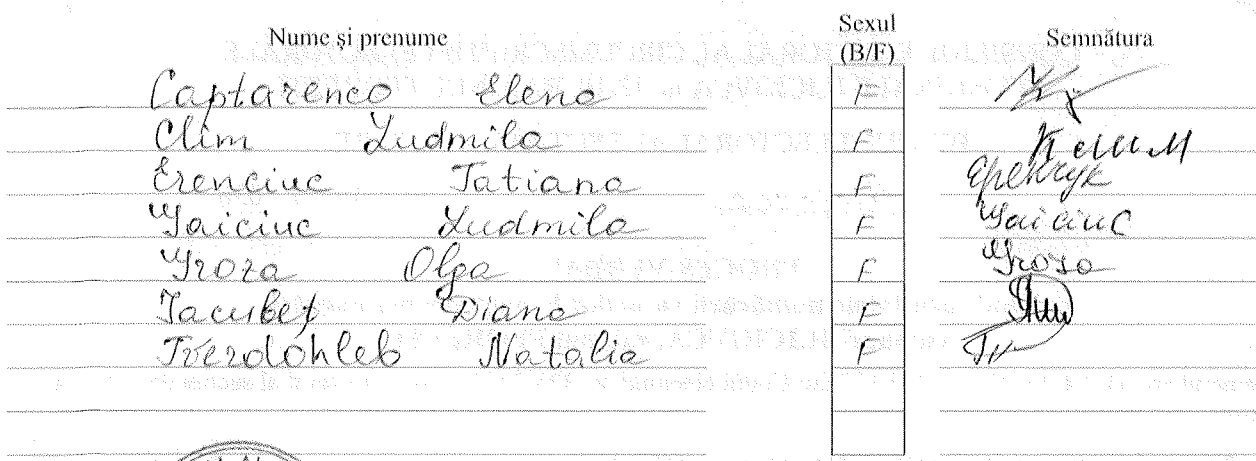 Nume și prenume Sexul (B/F) Semnătura
Captarenco Elena F
Clim Ludmila F Климм
Erenciuc Tatiana F Еренчук
Gaiciuc Ludmila F Gaiciuc
Groza Olga F Groza
Iacubeț Diana F
Tverdohleb Natalia F